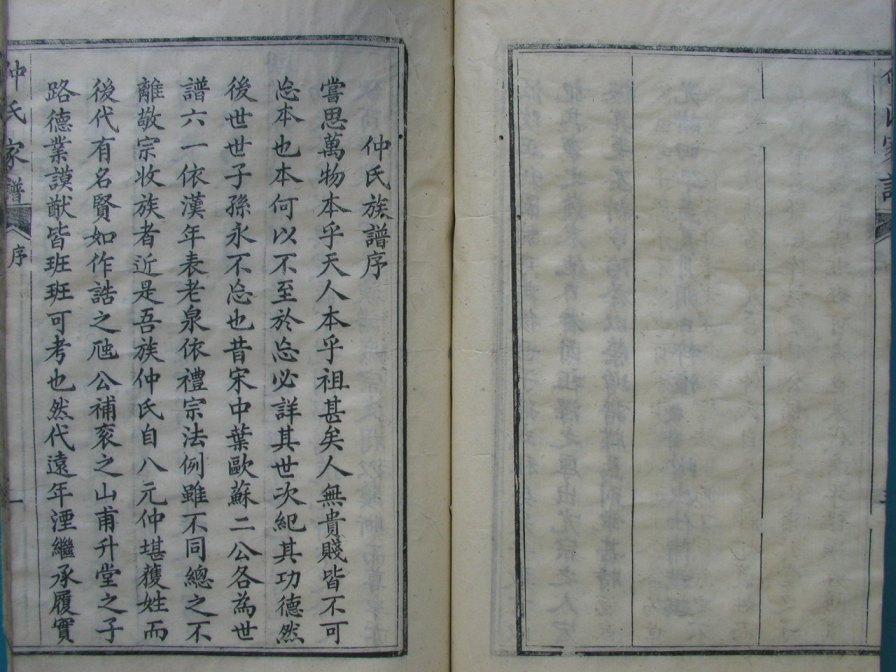 仲氏族譜序
嘗思萬物本乎天人本乎祖甚矣人無貴賤皆不可
忘本也本何以不至於忘必詳其世次紀其功德然
後世世子孫永不忘也昔宋中葉歐蘇二公各為世
譜六一依漢年表老泉依禮宗法例雖不同總之不
離敬宗收族者近是吾族仲氏自八元仲堪獲姓而
後代有名賢如作誥之虺公補袞之山甫升堂之子
路德業謨猷皆班班可考也然代遠年湮繼承履實
仲氏家譜
序
一